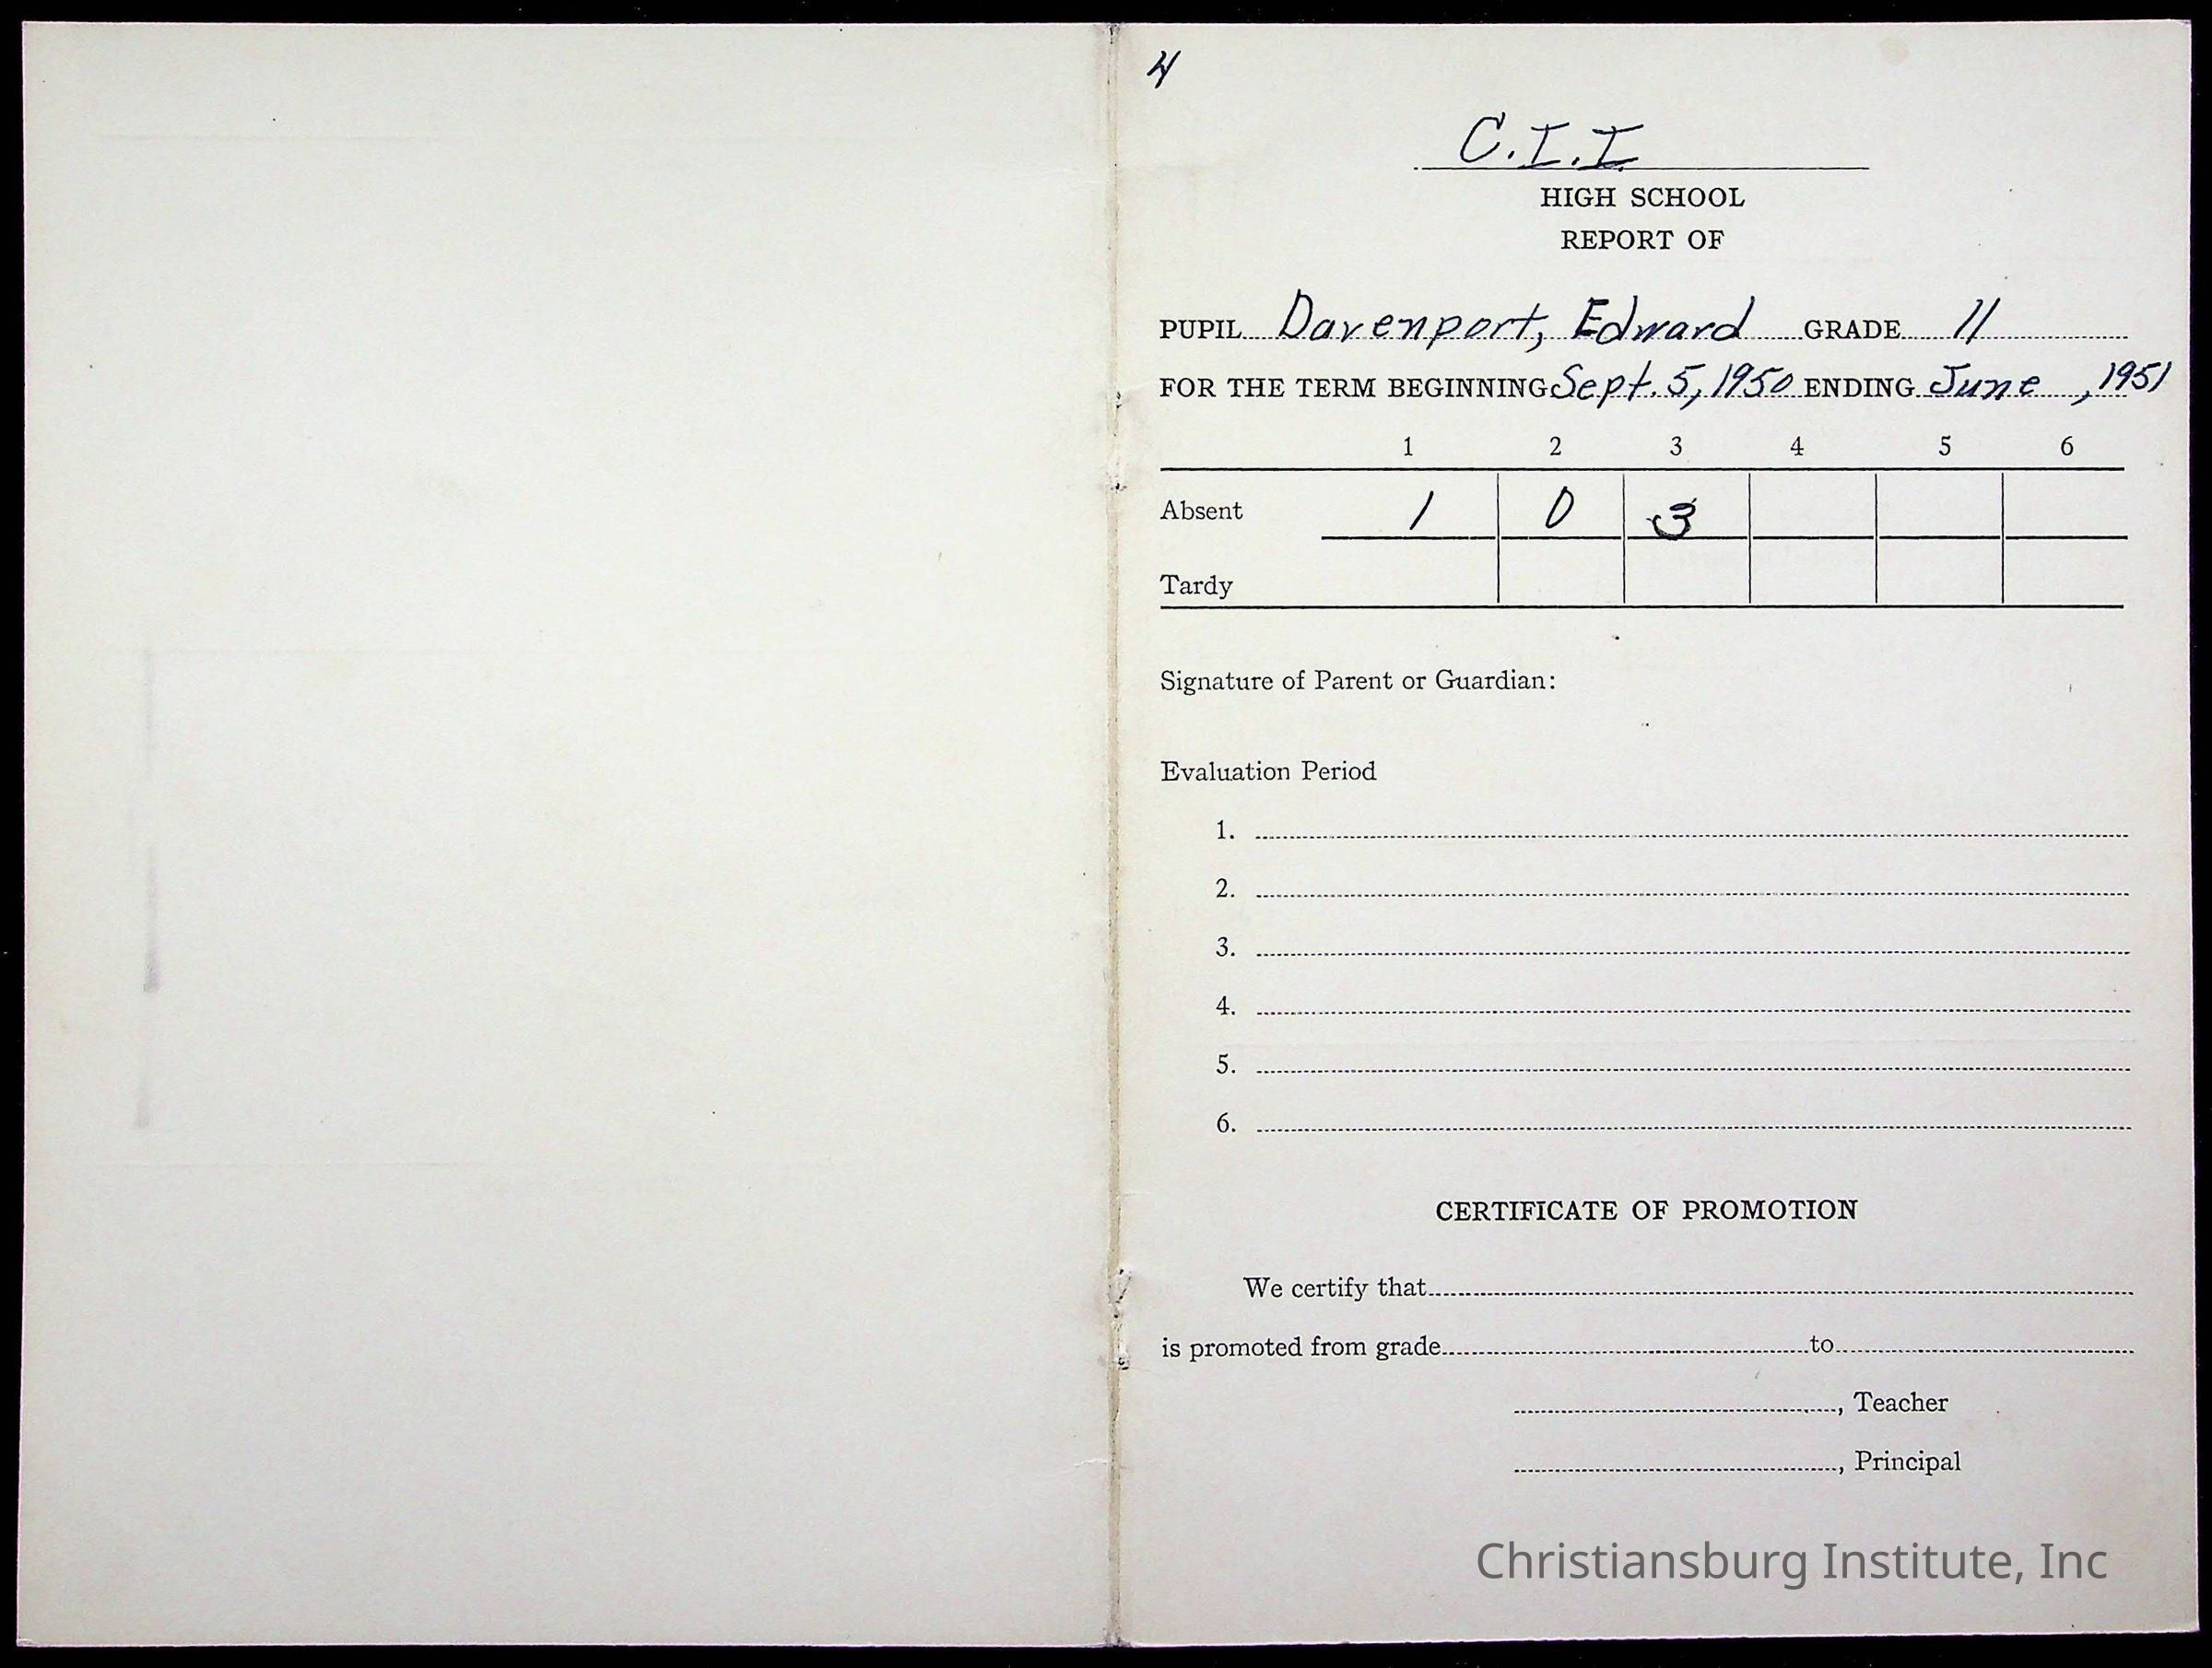 4
C.I.I.
HIGH SCHOOL
REPORT OF
PUPIL Davenport, Edward GRADE 11
FOR THE TERM BEGINNING Sept. 5, 1950 ENDING June , 1951
1 2 3 4 5 6
Absent 1 0 3
Tardy
Signature of Parent or Guardian:
Evaluation Period
1.
2.
3.
4.
5.
6.
CERTIFICATE OF PROMOTION
We certify that
is promoted from grade to
, Teacher
, Principal
Christiansburg Institute, Inc